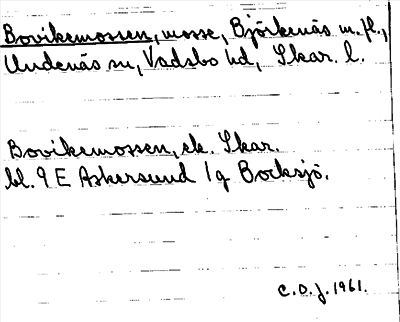 Bovikemossen, mosse, Björkenäs m. fl.,
Undenäs sn, Vadsbo hd, Skar. l.
Bovikemossen, ek. Skar.
bl. 9 E Askersund 1g Bocksjö.
C.O.J. 1961.